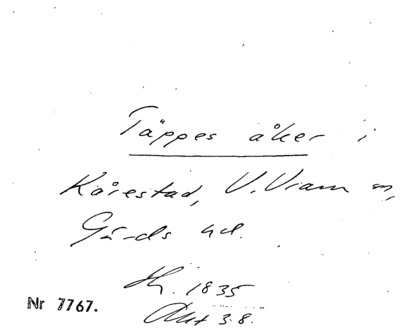 Täppes åker i
Kårestad, V. Vram sn,
Gärds hd.
1835
Akt 38.
Nr 7767.